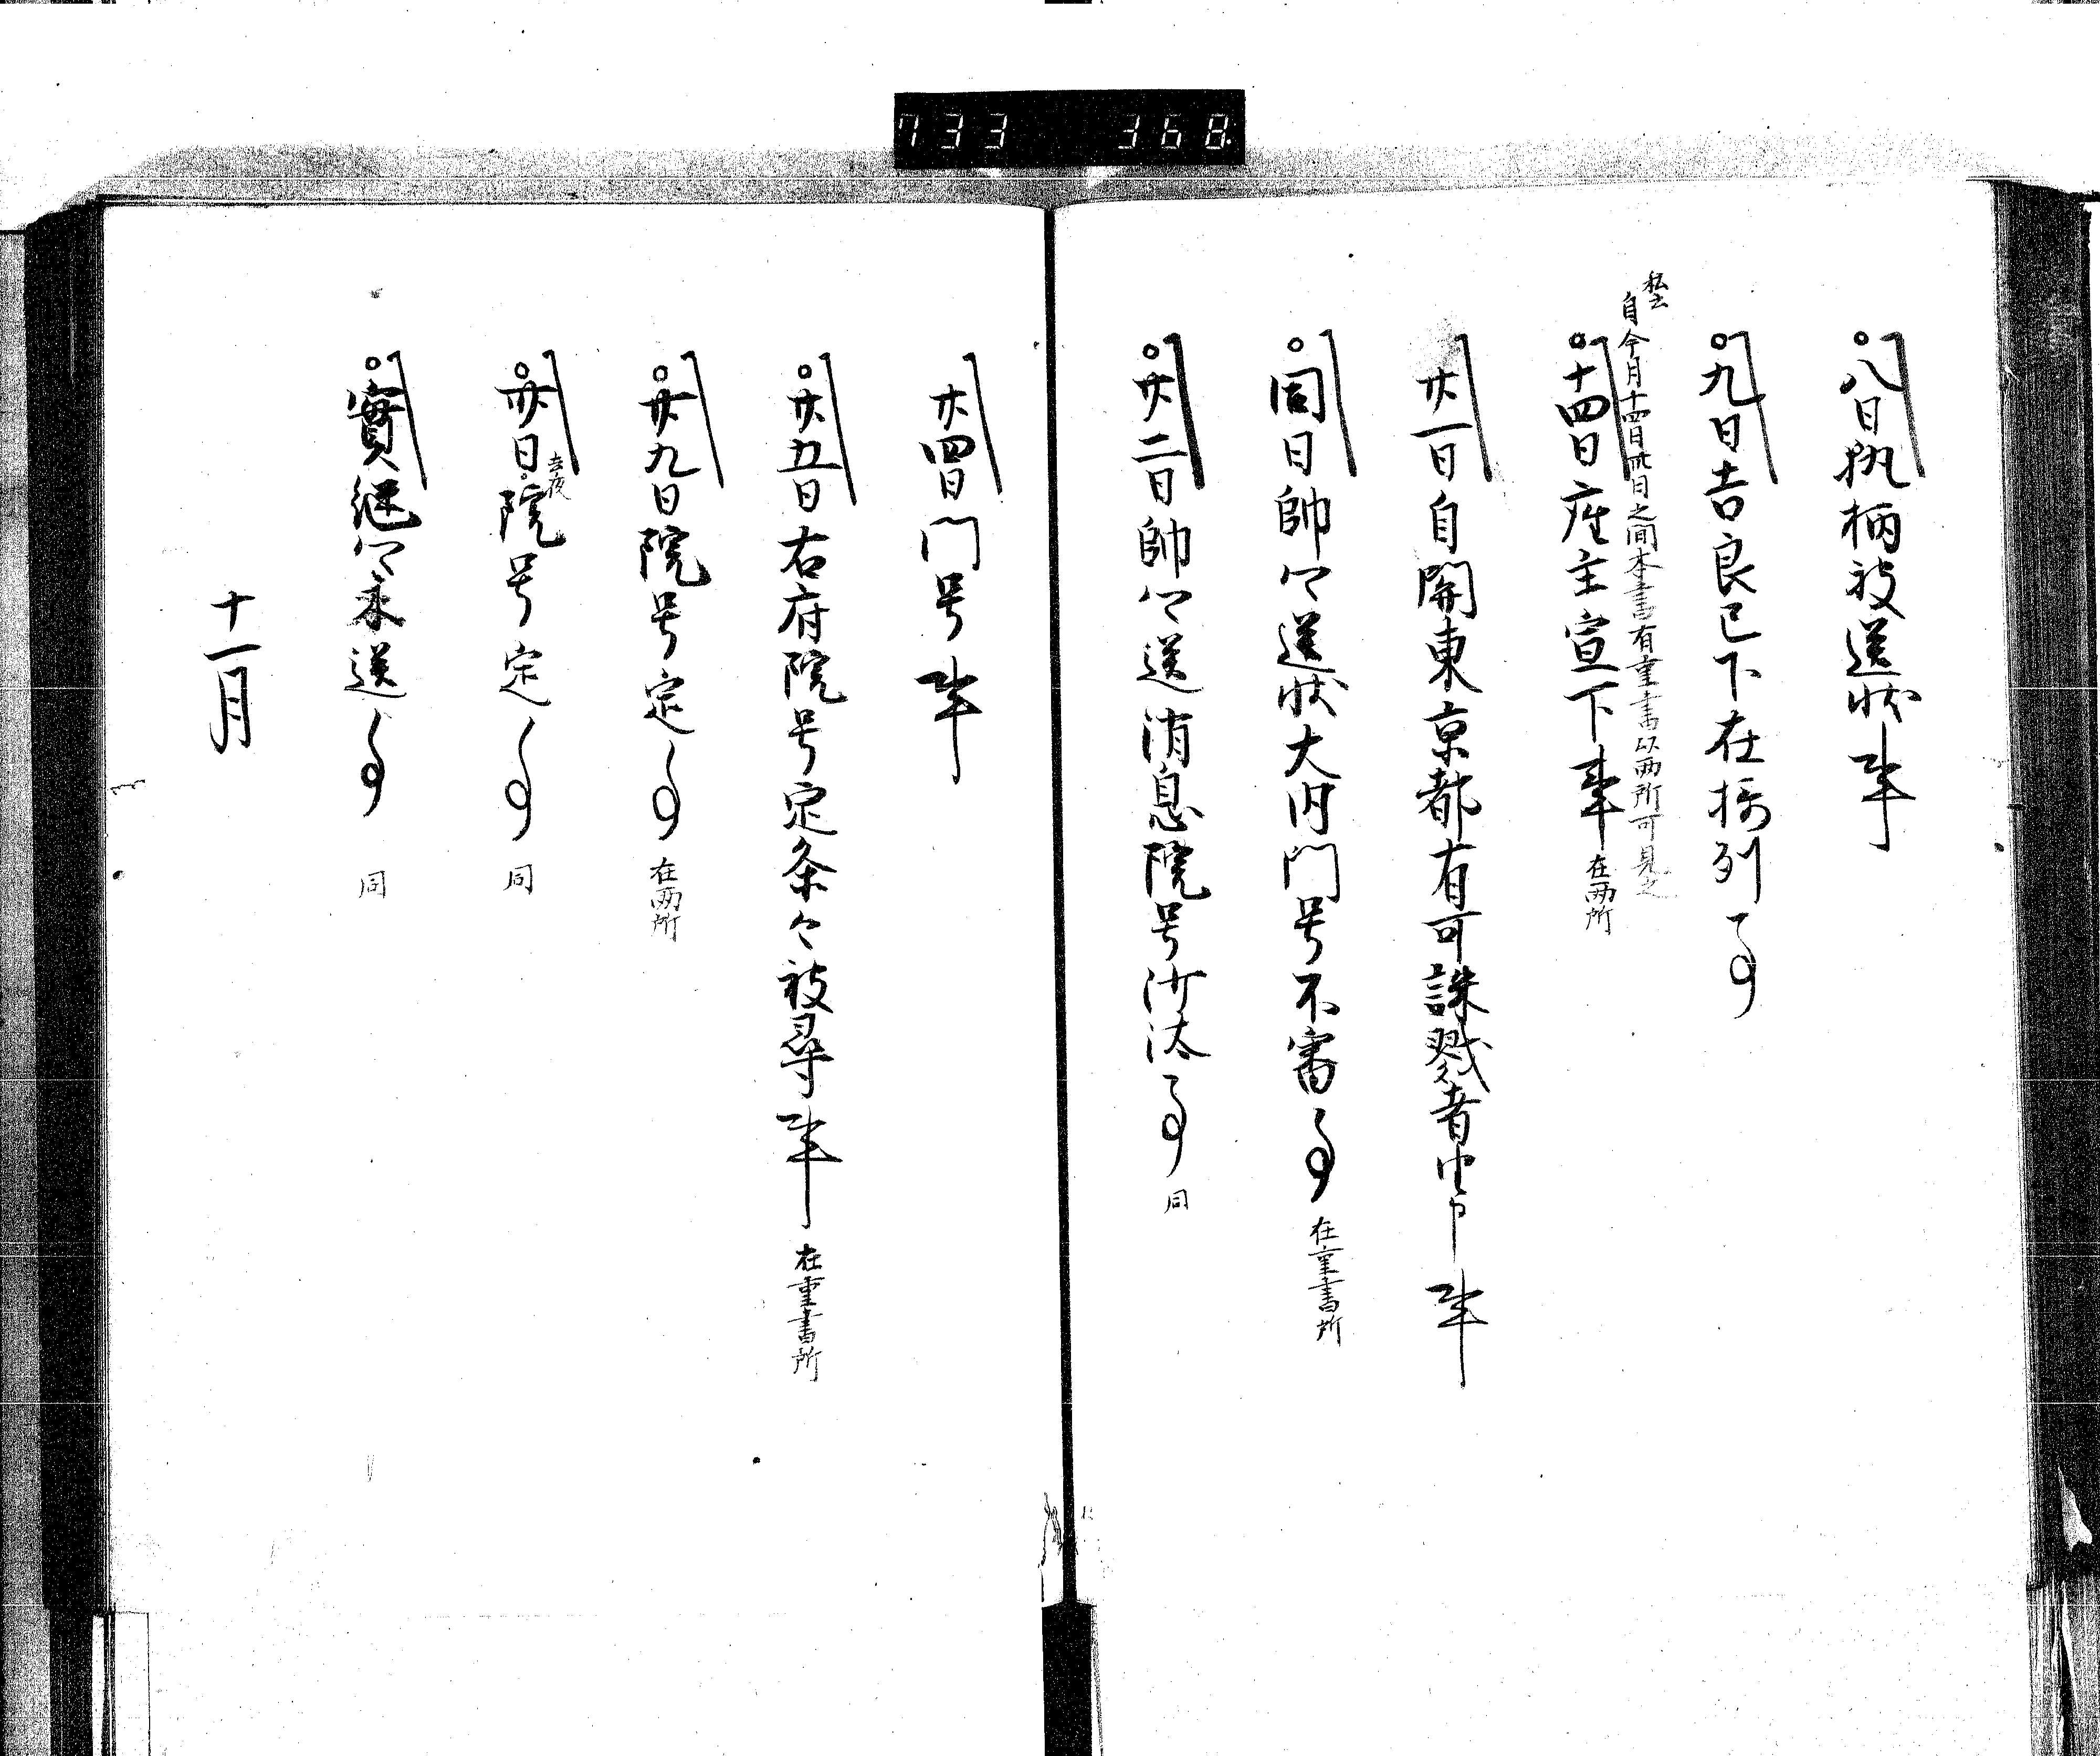 733 368
八日執柄被送状事
九日吉良已下在掖列事
私云
自今月十四日至卅日之間本書有重書以両所可見之
十四日座主宣下事 在両所
廿一日自関東京都有可誅戮者由事
同日帥卿送状大内門号不審事 在重書所
廿二日帥卿送消息院号沙汰事 同
廿四日門号事
廿五日右府院号定条々被尋事 在重書所
廿九日院号定事 在両所
卅日院号定事 同
實継卿来送事 同
十一月